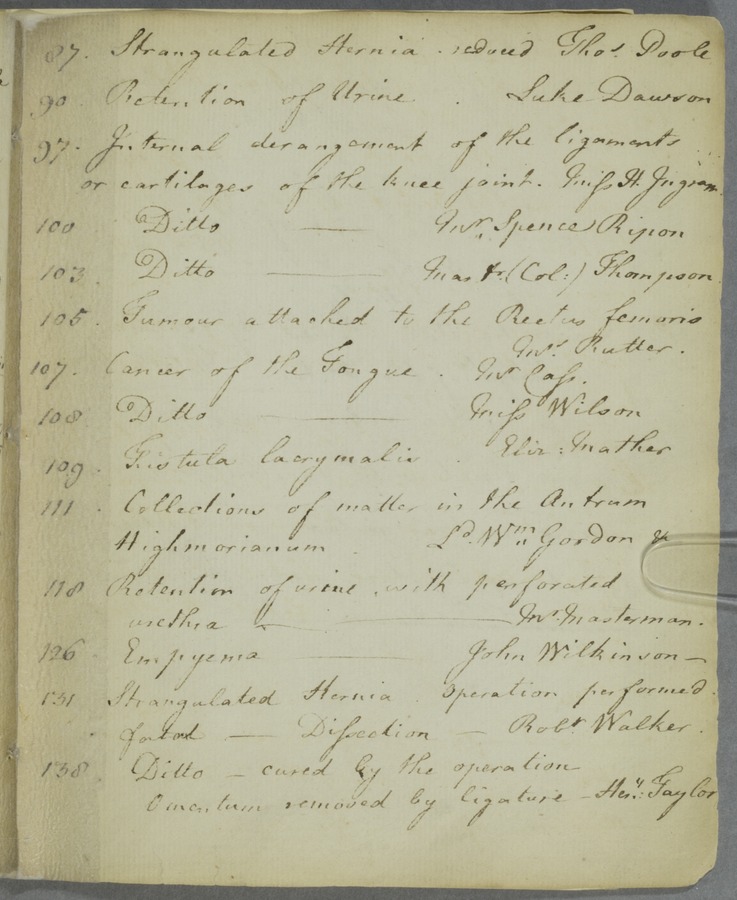 87. Strangulated Hernia . reduced Thos. Poole
90. Retention of Urine . Luke Dawson
97. Internal derangement of the ligaments
or cartilages of the knee joint. Miss H. Ingram
100 Ditto — Mr. Spence Ripon
103. Ditto — Mastr. (Col:) Thompson
105. Tumour attached to the Rectus femoris
Mrs. Rutter.
107. Cancer of the Tongue . Mr Cass.
108 Ditto — Miss Wilson
109. Fistula lacrymalis . Eliz: Mather
111. Collections of matter in the Antrum
Highmorianum . Ld. Wm. Gordon &
118 Retention of urine with perforated
urethra — Mr. Masterman.
126. Empyema — John Wilkinson —
131 Strangulated Hernia . operation performed
fatal — Dissection — Robt Walker.
138. Ditto — cured by the operation
Omentum removed by ligature — Heny: Taylor